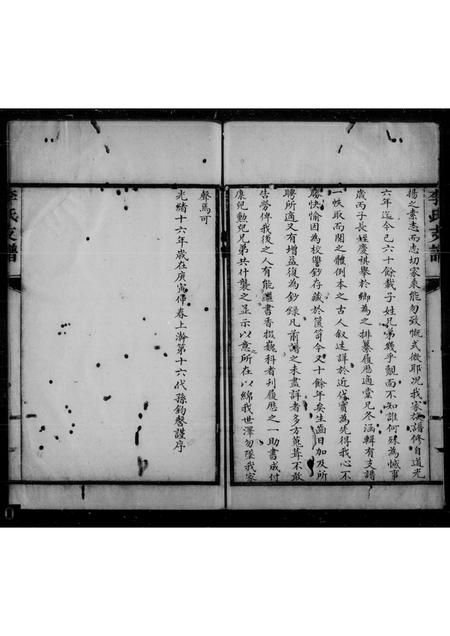 揚之素志而志切家乘能勿致慨式微耶况我家族譜修自道光
六年迄今已六十餘載子姓兄弟幾乎覿面不知誰何殊為憾事
歲丙子長姪慶祺舉於鄉為之排纂履歷適堂兄冬涵輯有支譜
一帙取而閱之體例本之古人敘述詳於近代實為先得我心不
勝快愉因為校讐鈔存藏於篋笥今又十餘年矣生齒日加及所
聘所適又有增益復為鈔錄凡前譜之未盡詳者多方蒐葺不敢
告勞俾我後之人有能讀書香掇巍科者刊履歷之一助書成付
康兒勲兒兄弟共什襲之並示以意所在以綿我世澤勿墜我家
聲焉可
光緒十六年歲在庚寅仲春上澣第十六代孫鈞謹序
李氏支譜
李氏支譜